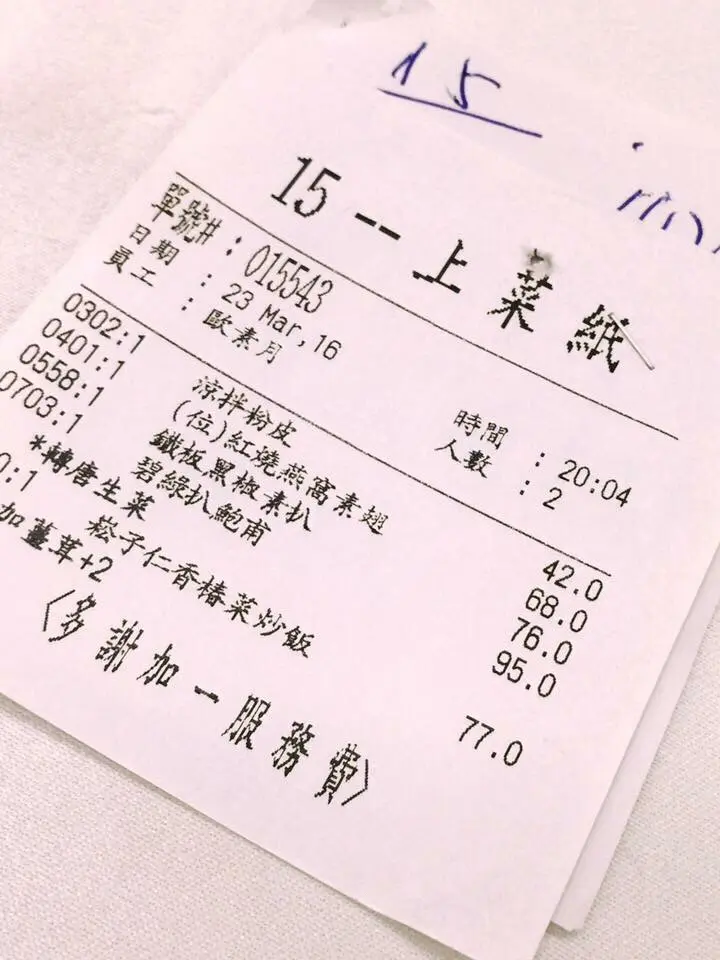 15
15 -- 上菜紙
單號#: 015543
日期 : 23 Mar,16 時間 : 20:04
員工 : 歐素月 人數 : 2
0302:1 涼拌粉皮 42.0
0401:1 (位)紅燒燕窩素翅 68.0
0558:1 鐵板黑椒素扒 76.0
0703:1 碧綠扒鮑甫 95.0
*轉唐生菜
0:1 崧子仁香椿菜炒飯 77.0
加薑茸+2
〈多謝加一服務費〉